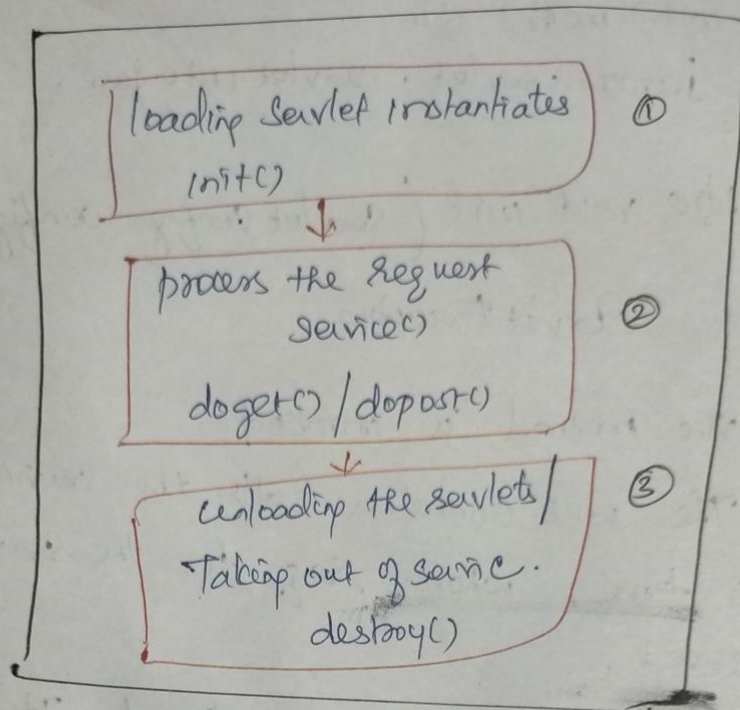 loading Servlet instantiates
①
init()
process the request
service()
②
doget() / dopost()
unloading the servlets/
③
Taking out of servic.
destroy()